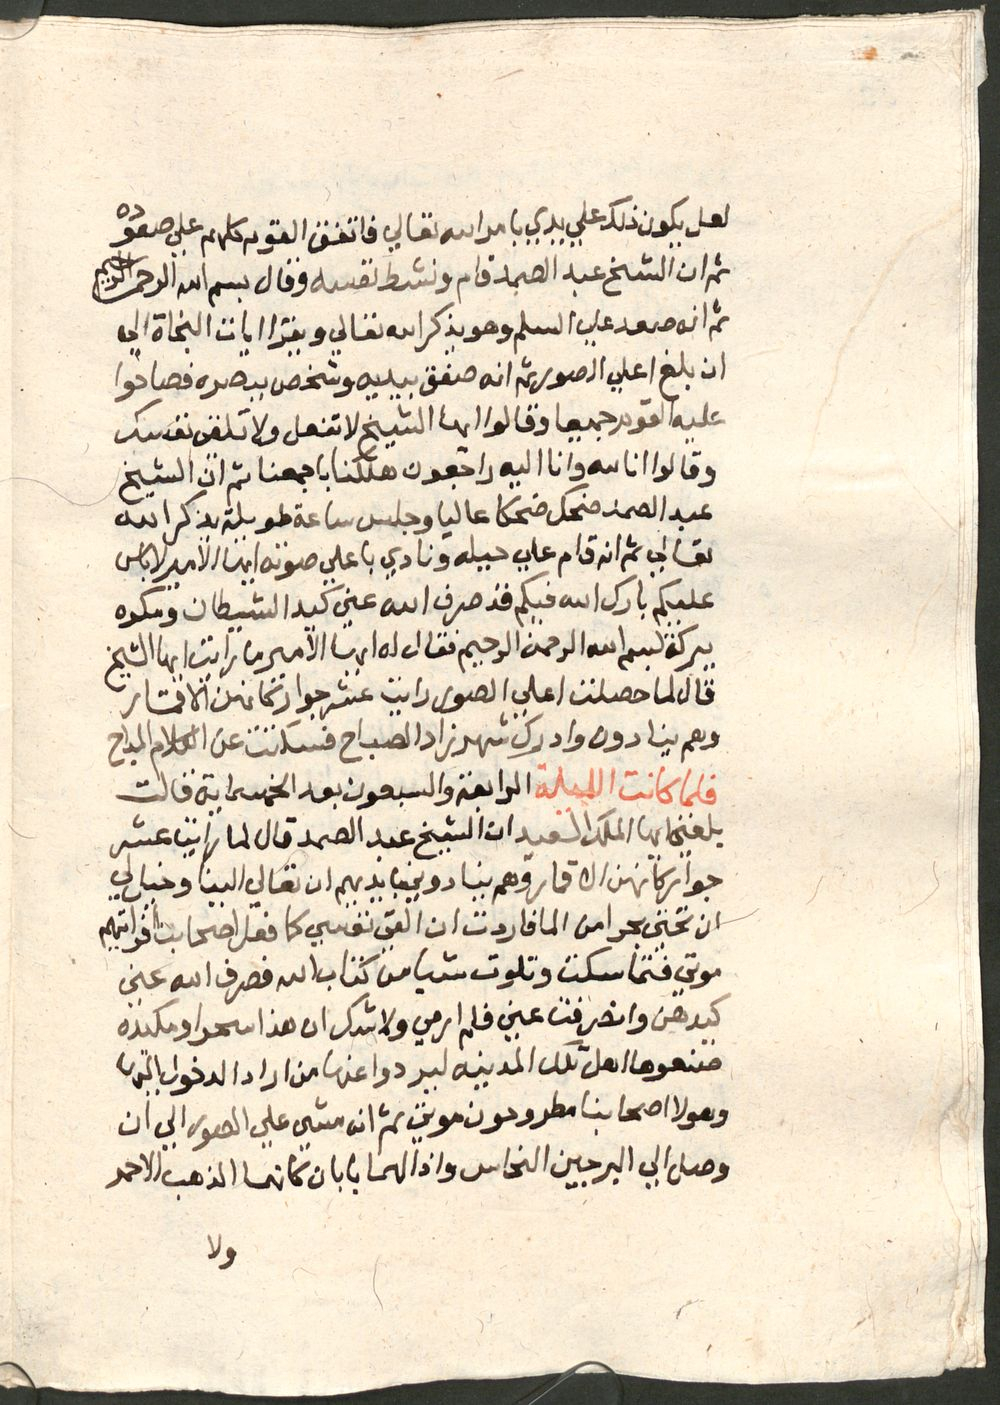 لعل يكون ذلك علي يدي بامر الله تعالي فاتفق القوم كلهم علي صعوده
ثم ان الشيخ عبد الصمد قام ونشط نفسه وقال بسم الله الرحمن الرحيم
ثم انه صعد علي السلم وهو يذكر الله تعالي ويقرا ايات النجاة الي
ان بلغ اعلي الصور ثم انه صفق بيديه وشخص ببصره فصاحوا
عليه القوم جميعا وقالوا ايها الشيخ لا تفعل ولا تلقي نفسك
وقالوا انا لله وانا اليه راجعون هلكنا باجمعنا ثم ان الشيخ
عبد الصمد ضحك ضحكا عاليا وجلس ساعة طويلة يذكر الله
تعالي ثم انه قام علي حيله ونادي باعلي صوته ايها الامير لا باس
عليكم بارك الله فيكم قد صرف الله عني كيد الشيطان ومكره
ببركة بسم الله الرحمن الرحيم فقال له ايها الامير ما رايت ايها الشيخ
قال لما حصلت اعلي الصور رايت عشر جوار كانهن الاقمار
وهم ينادون وادرك شهرزاد الصباح فسكتت عن الكلام المباح
فلما كانت الليلة الرابعة والسبعون بعد الخمسماية قالت
بلغني ايها الملك السعيد ان الشيخ عبد الصمد قال لما رايت عشر
جوار كانهن الاقمار وهم ينادوني بايديهم ان تعالي الينا وخيل لي
ان تحتي بحرا من الما فاردت ان القي نفسي كما فعل اصحابنا فرايتهم
موتي فتماسكت وتلوت شيا من كتاب الله فصرف الله عني
كيدهن وانصرفت عني فلم ارمي ولا شك ان هذا سحرا ومكيدة
صنعوها اهل تلك المدينه ليردوا عنها من اراد الدخول اليها
وهولا اصحابنا مطروحون موتي ثم انه مشي علي الصور الي ان
وصل الي البرجين النحاس واذا لهما بابان كانهما الذهب الاحمر
ولا